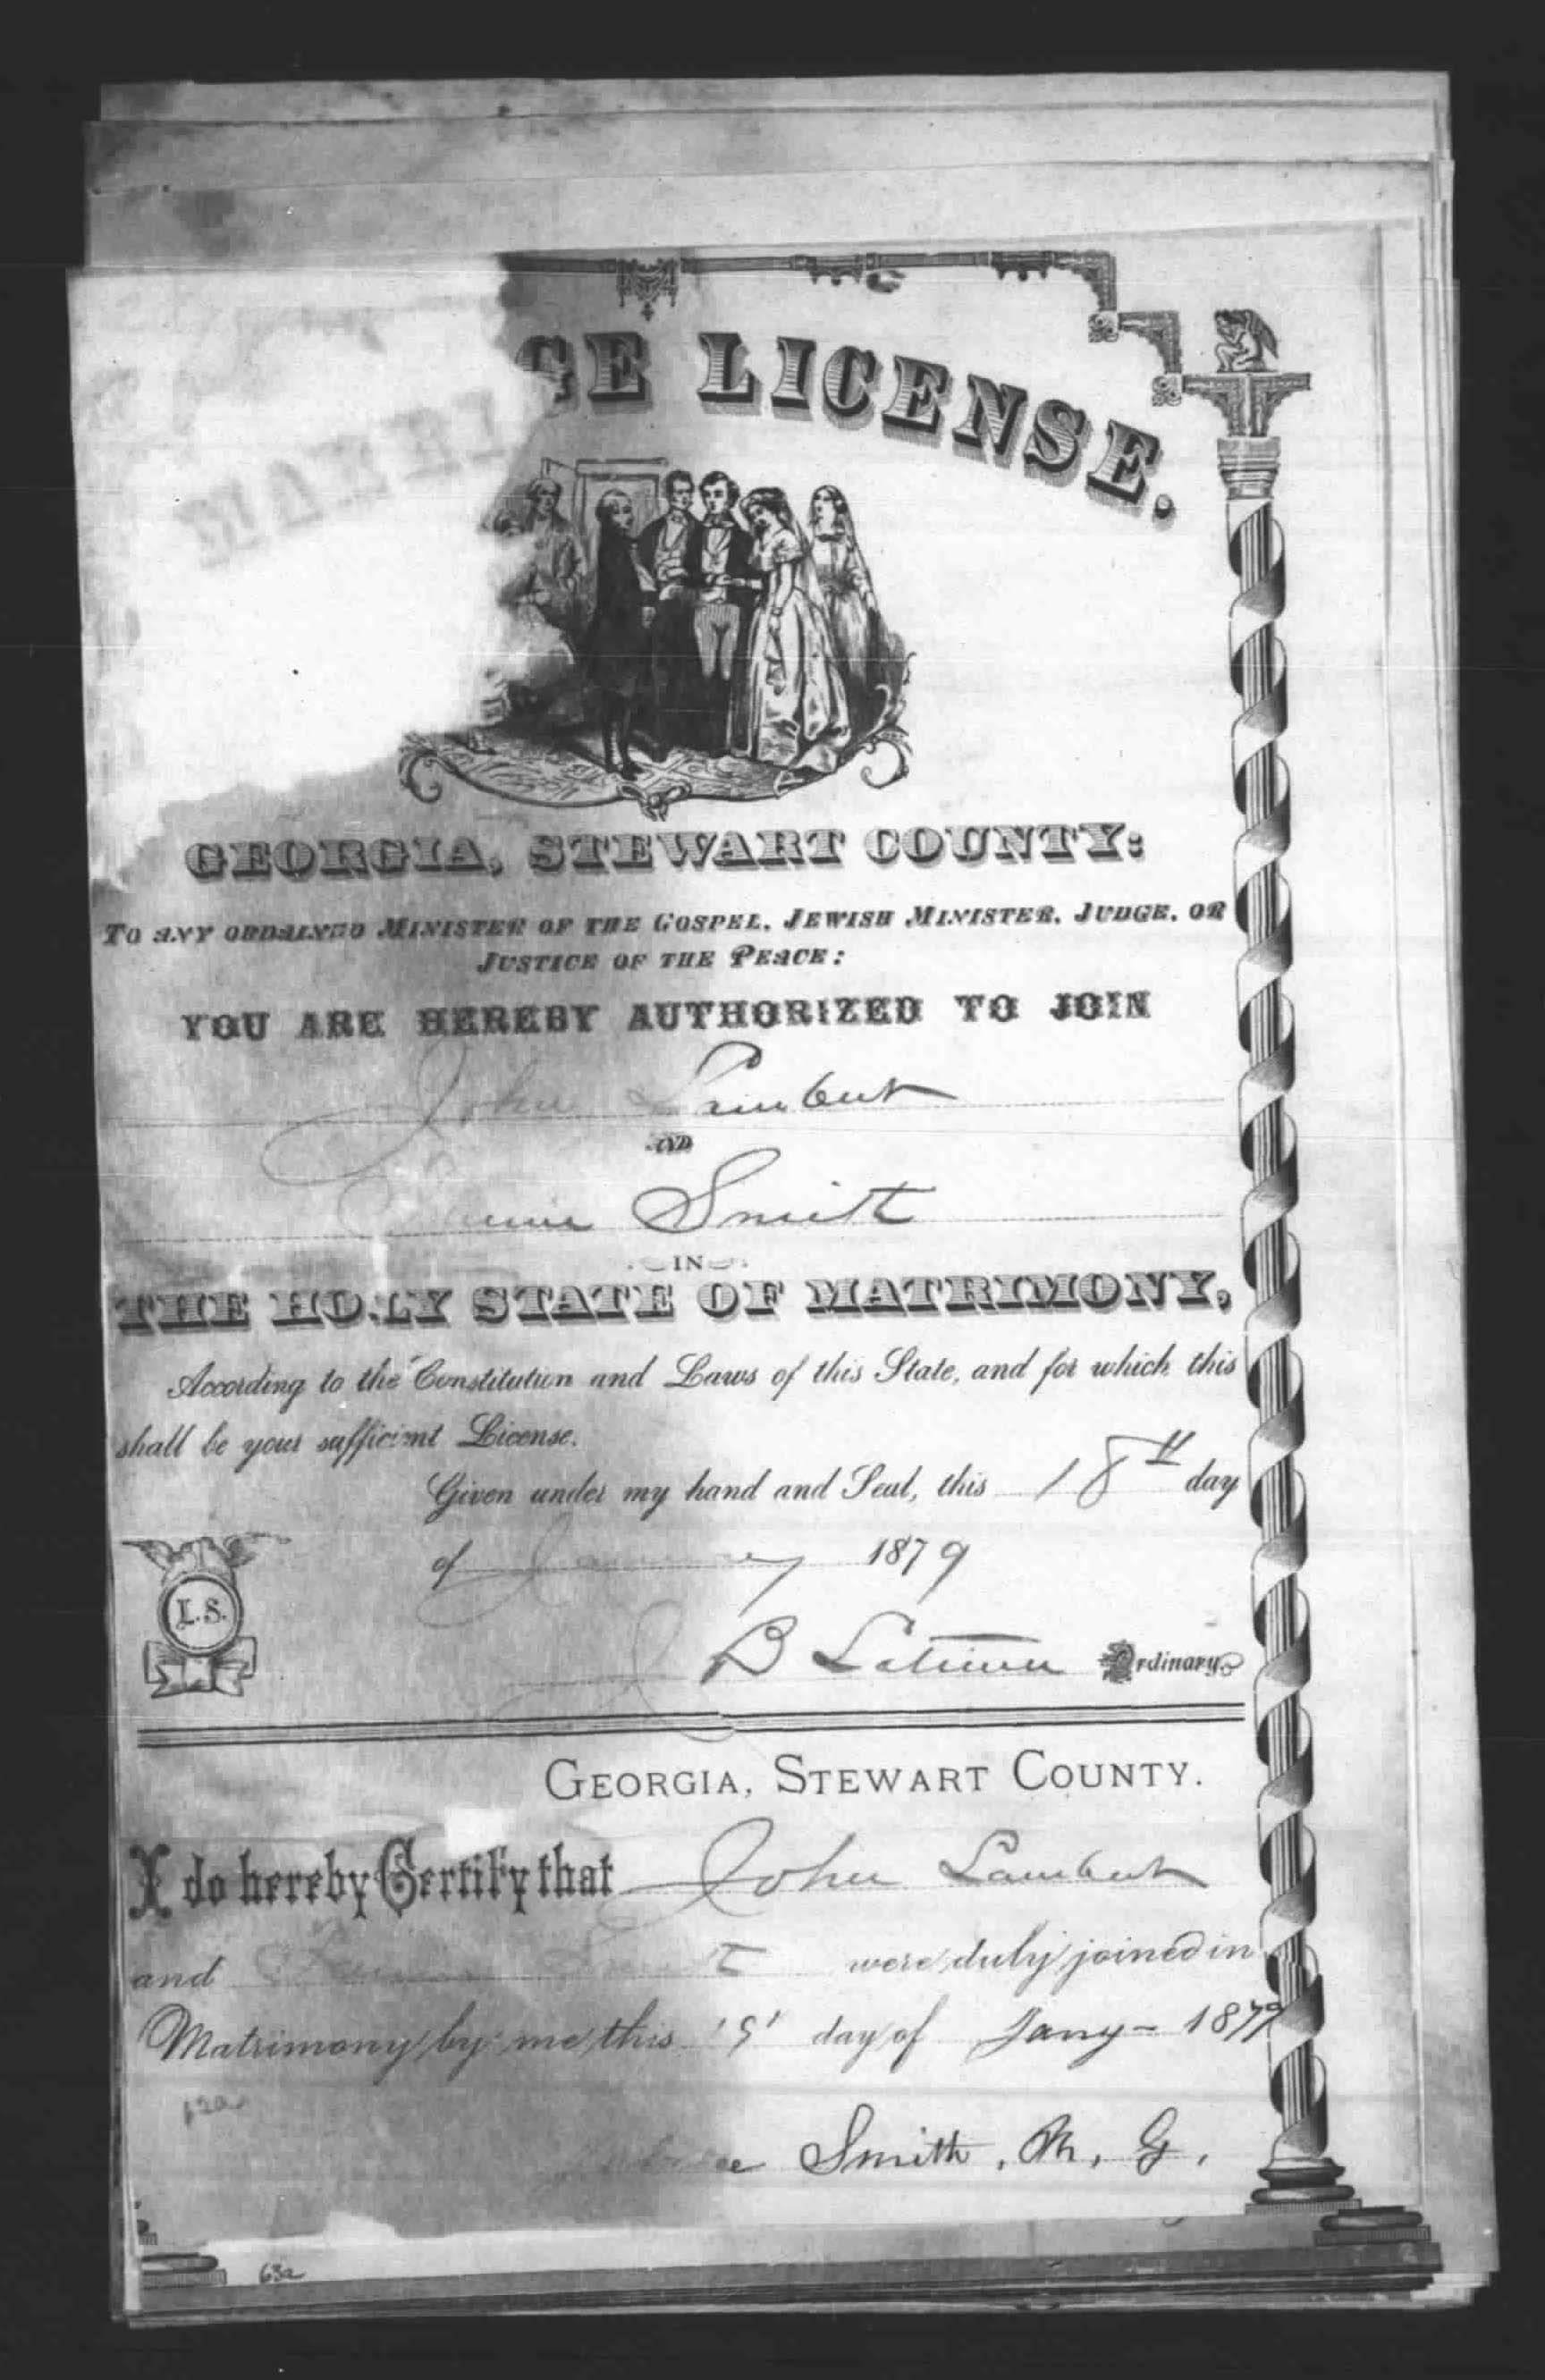 GE LICENSE.
GEORGIA, STEWART COUNTY:
TO ANY ORDAINED MINISTER OF THE GOSPEL, JEWISH MINISTER, JUDGE, OR
JUSTICE OF THE PEACE:
YOU ARE HEREBY AUTHORIZED TO JOIN
John Lambert
AND
Smith
IN
THE HOLY STATE OF MATRIMONY,
According to the Constitution and Laws of this State, and for which this
shall be your sufficient License.
Given under my hand and Seal, this 18th day
of January 1879
L.S.
J B Latimer Ordinary
GEORGIA, STEWART COUNTY.
I do hereby Certify that John Lambert
and Smith were duly joined in
Matrimony by me this 19 day of Jany - 1879
Smith, M. G.
63a